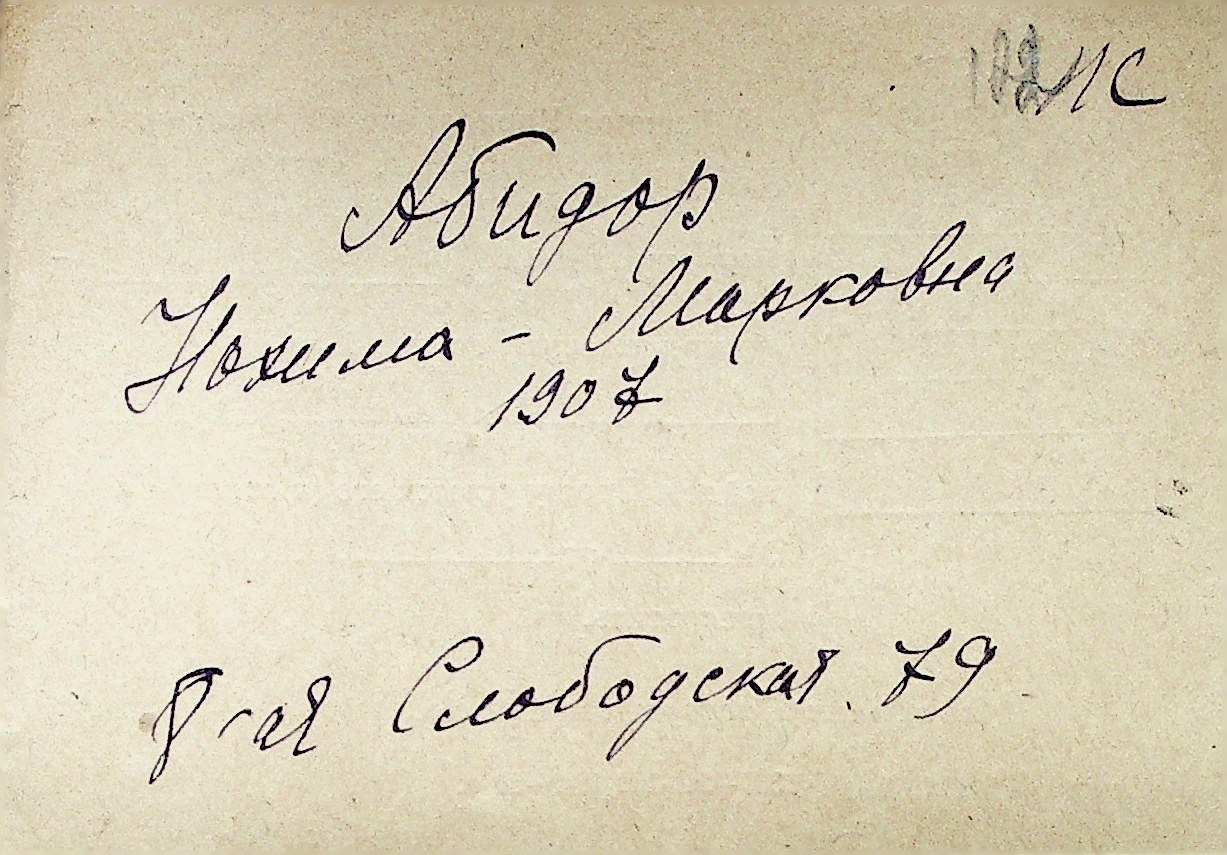 ИС
Абидор
Нохима - Марковна
1907
8-ая Слободская 79